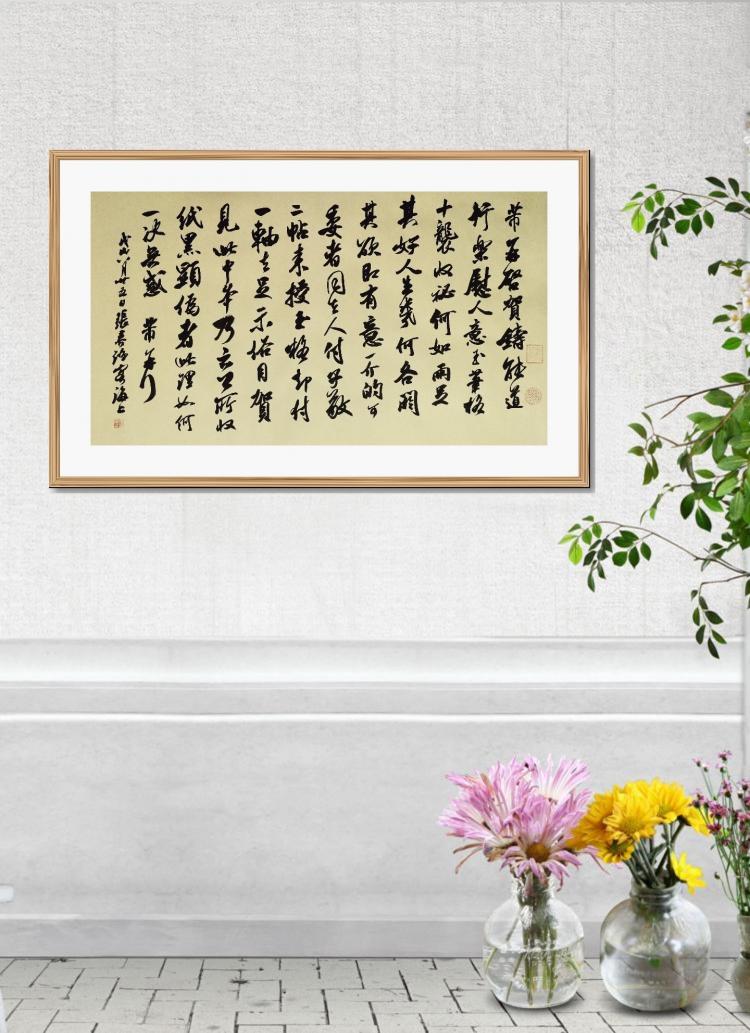 芾再啓賀鑄能道
行樂慰人意玉筆格
十襲收秘何如兩足
其好人生幾何各閼
其欲即有意一介的可
委者同去人付子敬
二帖來授玉格却付
一軸去足示俗目賀
見此中本乃云公所收
紙黑顯偽者此理如何
一決無惑 芾再行
戊戌八月廿五日張春海上